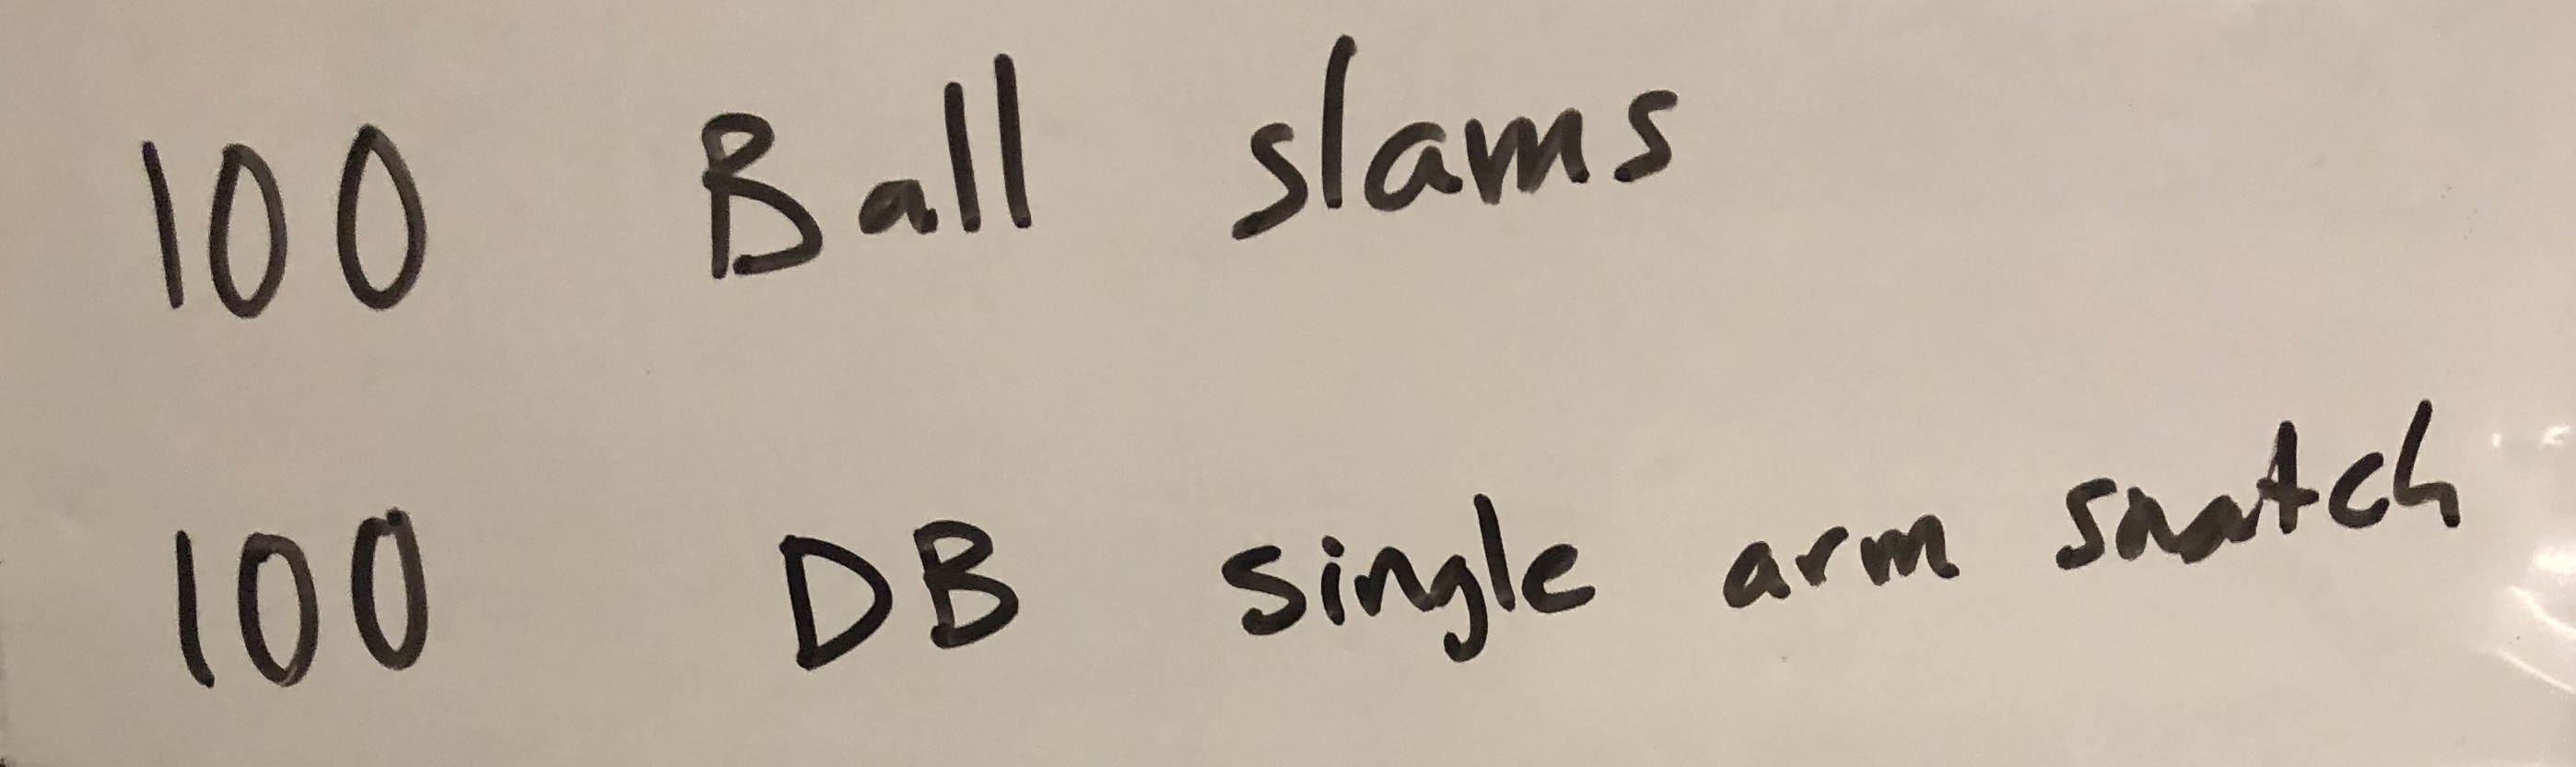 100 Ball slams
100 DB single arm snatch